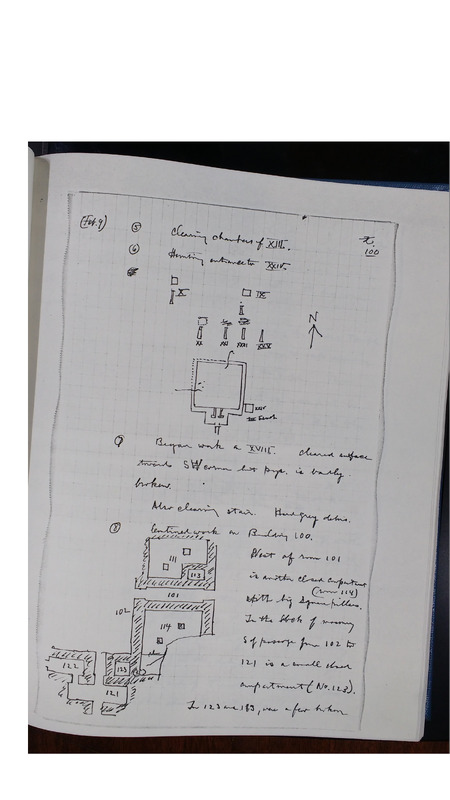 (Feb. 9)
⑤ Clearing chambers of XIII.
100
⑥ Hunting entrance to XXIV.
X
IX
N
XX
XXI
XXV
XXIV
⑦ Began work on XVIII. Cleared surface
towards SW corner but pyr. is badly
broken.
Also clearing stair. Hard grey debris.
⑧ Continued work on Building 100.
111
113
101
102
114
122
123
121
West of room 101
is another closed apartment
(room 114)
with big square pillars.
In the block of masonry
S of passage from 102 to
121 is a small closed
apartment (No. 123).
In 123 and 113, were a few broken